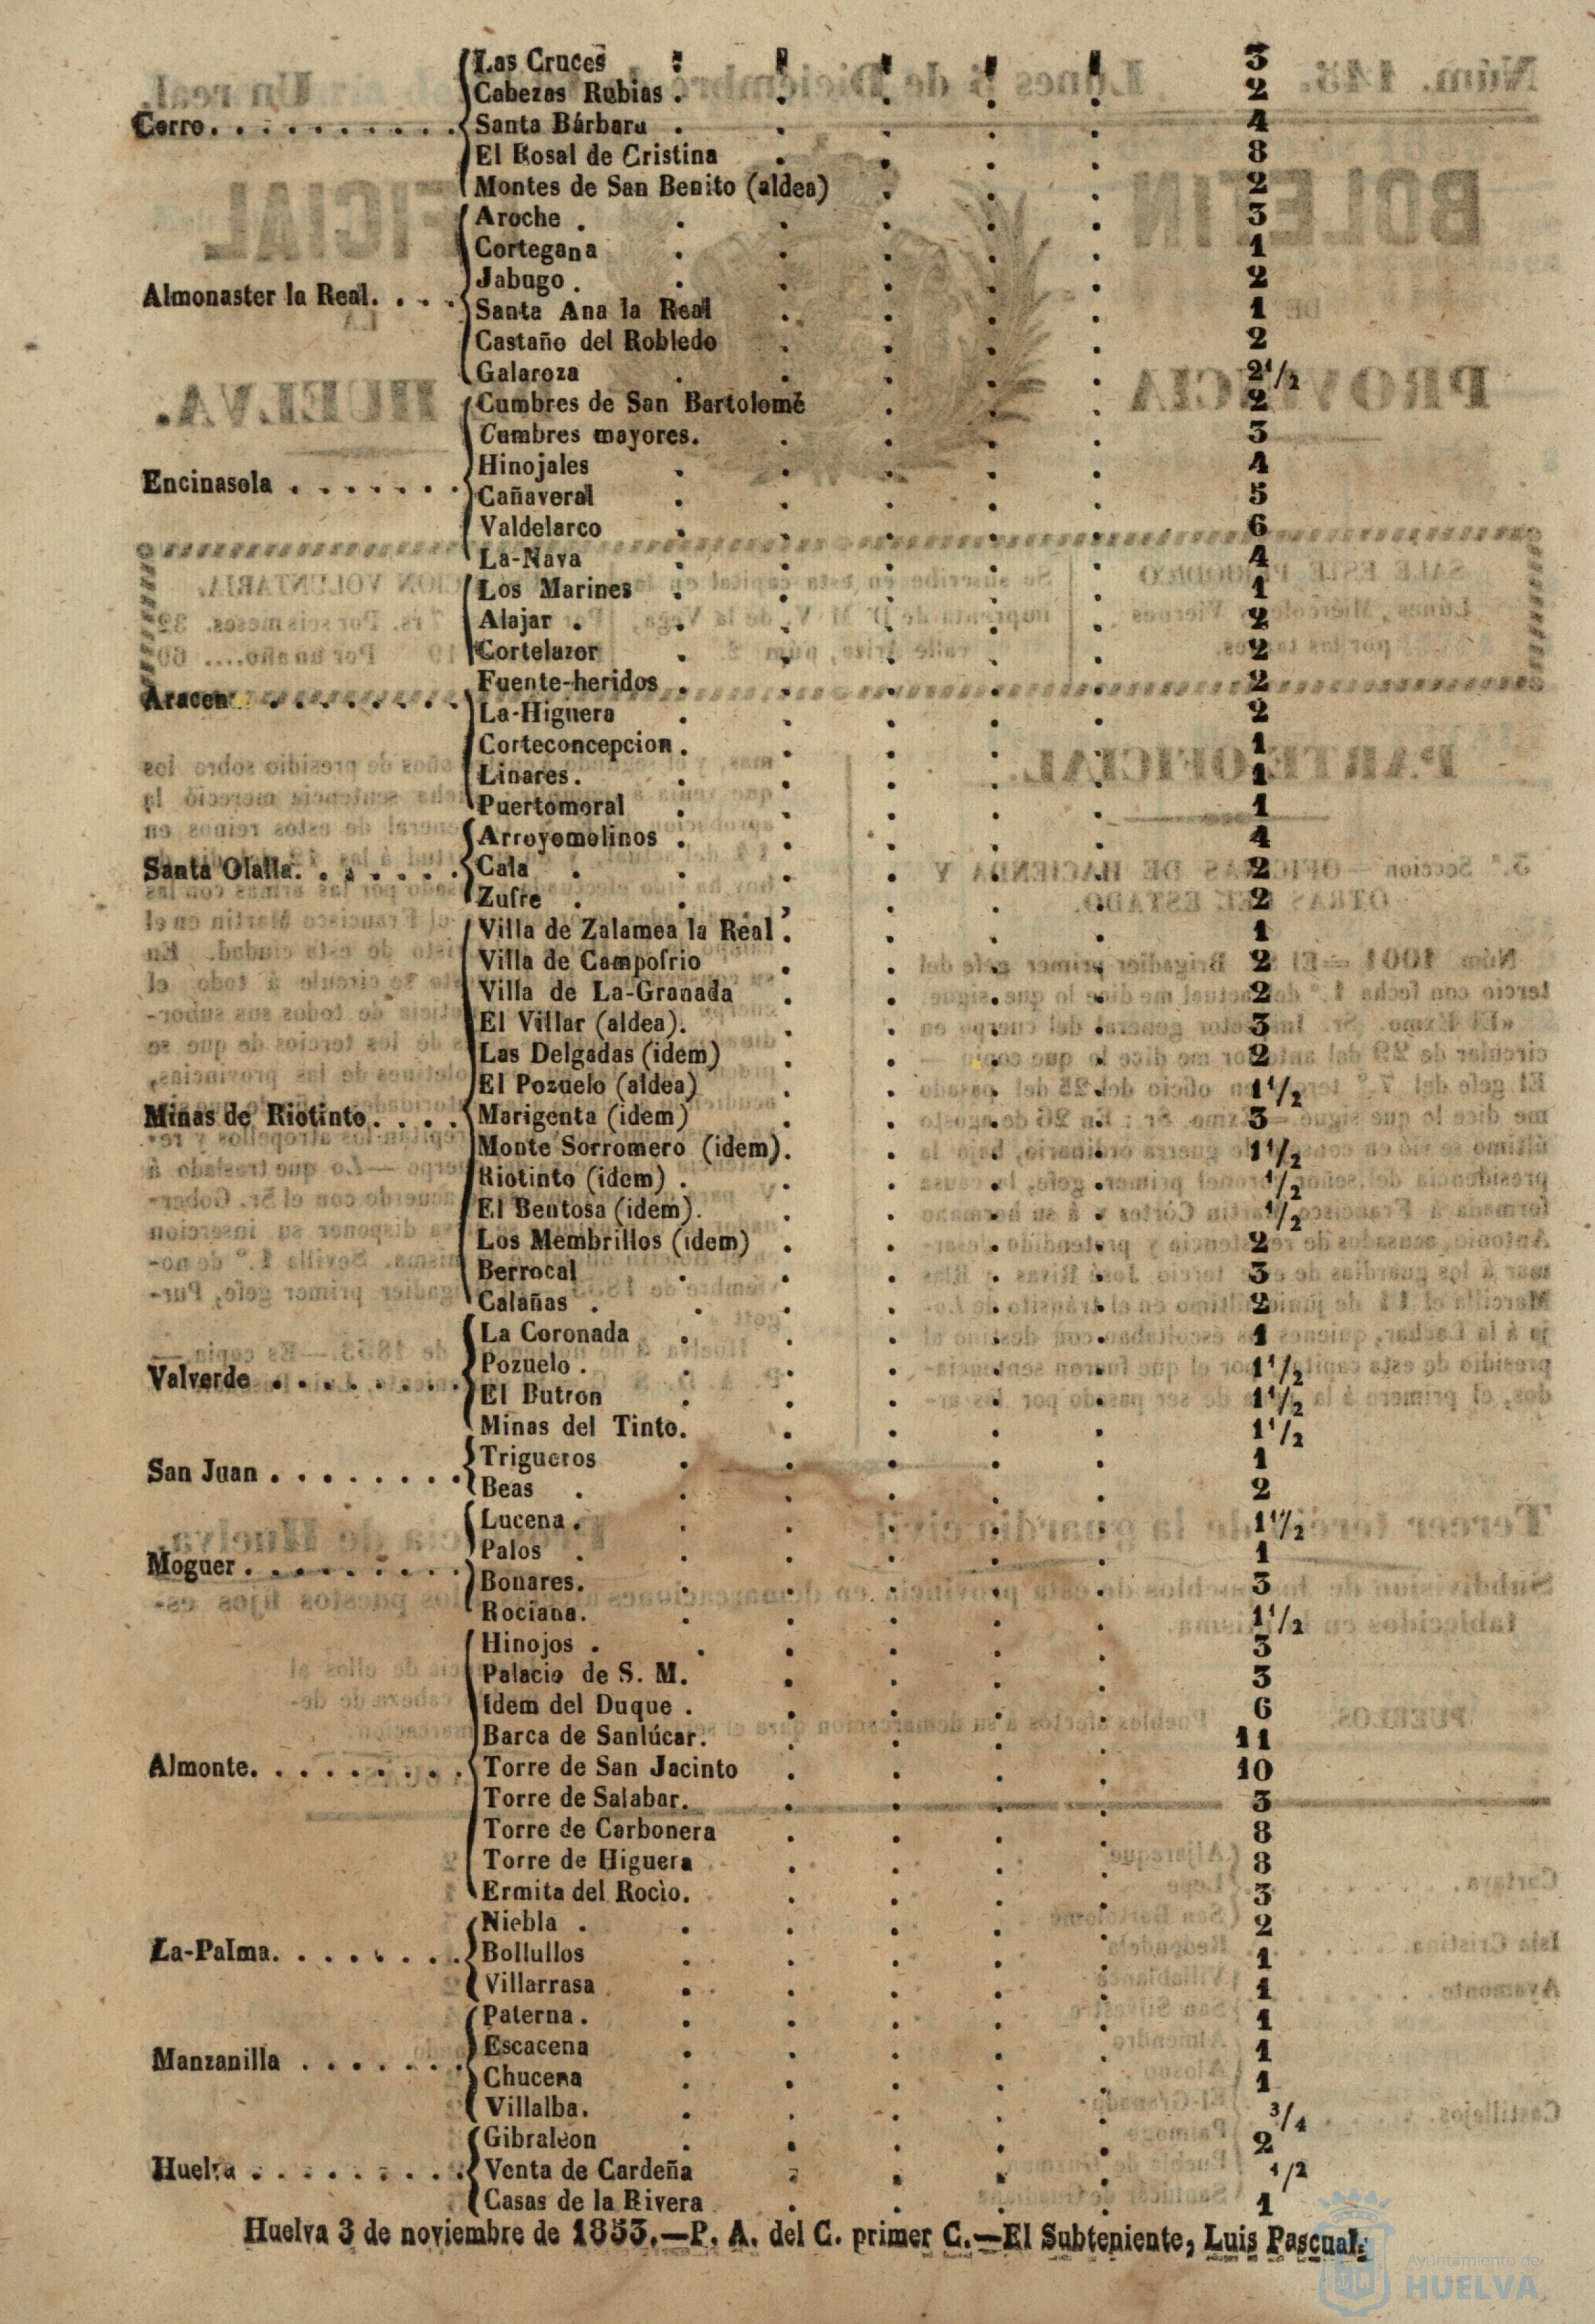 Las Cruces 3
Cabezas Rubias . 2
Cerro. Santa Bárbara . 4
El Rosal de Cristina 8
Montes de San Benito (aldea) 2
Aroche . 3
Cortegana 1
Jabugo . 2
Almonaster la Real. Santa Ana la Real 1
Castaño del Robledo 2
Galaroza 2 1/2
Cumbres de San Bartolomé 2
Cumbres mayores. 3
Hinojales 4
Encinasola Cañaveral 5
Valdelarco 6
La-Nava 4
Los Marines 1
Alajar . 2
Cortelazor 2
Fuente-heridos . 2
Aracena La-Higuera 2
Corteconcepcion . 1
Linares. 1
Puertomoral 1
Arroyomolinos . 4
Santa Olalla. Cala 2
Zufre . 2
Villa de Zalamea la Real . 1
Villa de Campofrio 2
Villa de La-Granada 2
El Villar (aldea). 3
Las Delgadas (idem) 2
El Pozuelo (aldea) 1 1/2
Minas de Riotinto. Marigenta (idem) 3
Monte Sorromero (idem). 1 1/2
Riotinto (idem) . 1/2
El Bentosa (idem). 1/2
Los Membrillos (idem) 2
Berrocal 3
Calañas . 2
La Coronada 1
Pozuelo . 1 1/2
Valverde El Butron 1 1/2
Minas del Tinto. 1 1/2
San Juan Trigueros 1
Beas 2
Lucena . 1 1/2
Palos 1
Moguer . Bonares. 3
Rociana. 1 1/2
Hinojos . 3
Palacio de S. M. 3
Idem del Duque . 6
Barca de Sanlúcar. 11
Almonte. Torre de San Jacinto 10
Torre de Salabar. 3
Torre de Carbonera 8
Torre de Higuera 8
Ermita del Rocio. 3
Niebla . 2
La-Palma. Bollullos 1
Villarrasa 1
Paterna . 1
Escacena 1
Manzanilla Chucena 1
Villalba. 3/4
Gibraleon 2
Huelva Venta de Cardeña 1/2
Casas de la Rivera 1
Huelva 3 de noviembre de 1853.—P. A. del C. primer C.—El Subteniente, Luis Pascual.
Ayuntamiento de
HUELVA